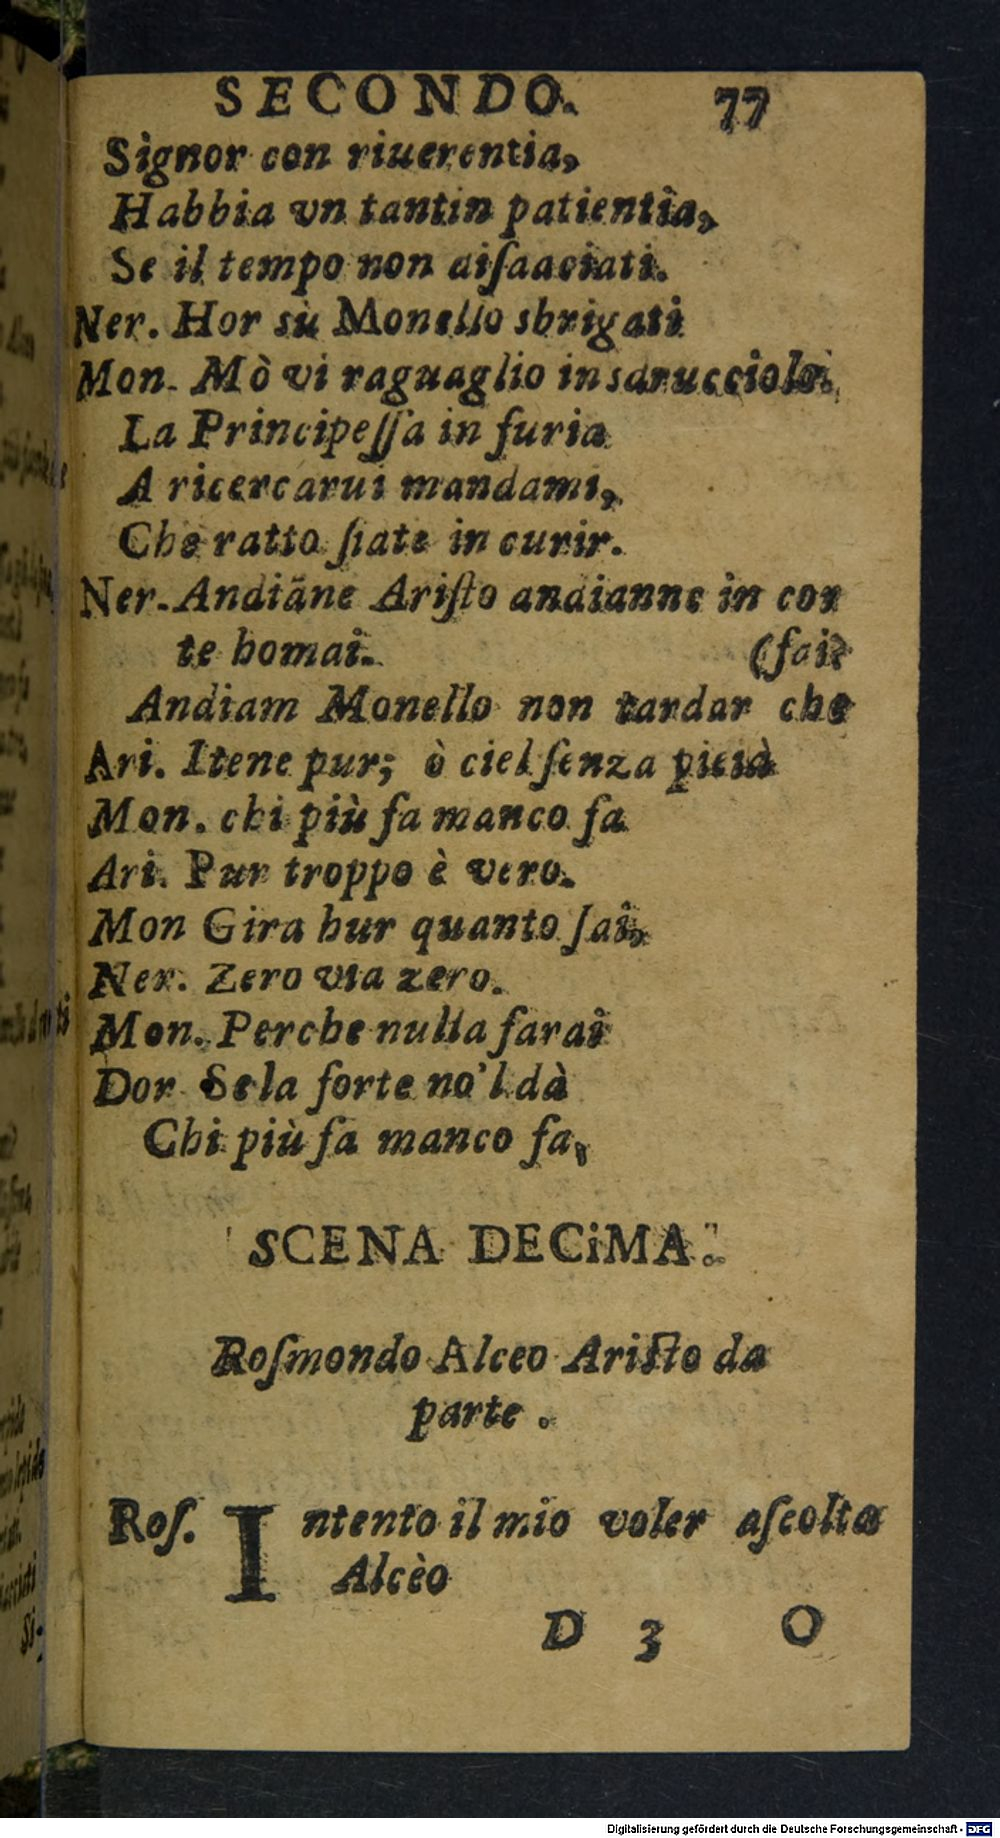 SECONDO. 77
Signor con riuerentia,
Habbia vn tantin patientia,
Se il tempo non aiſaaciati.
Ner. Hor sù Monello sbrigati
Mon. Mò vi raguaglio in sdrucciolo.
La Principeſſa in furia
A ricercarui mandami,
Che ratto ſiate in curir.
Ner. Andiāne Ariſto andianne in cor
te homai. (fai?
Andiam Monello non tardar che
Ari. Itene pur; ò ciel ſenza pietà
Mon. chi più fa manco fa
Ari. Pur troppo è vero.
Mon Gira hur quanto ſai,
Ner. Zero via zero.
Mon. Perche nulla farai
Dor Se la ſorte no'l dà
Chi più fa manco fa,
SCENA DECiMA.
Roſmondo Alceo Ariſto da
parte.
Roſ. Intento il mio voler aſcolta
Alcèo
D 3 O
Digitalisierung gefördert durch die Deutsche Forschungsgemeinschaft - DFG